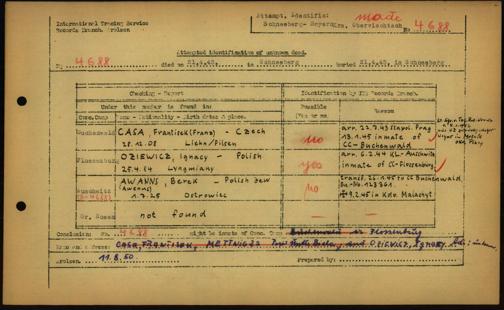 International Tracing Service
Records Branch, Arolsen
Attempt. Identific: made
Schneeberg - Oberviechtach
No 4688
Attempted identification of unknown dead.
No 4688 died on 21.4.45. in Schneeberg buried 21.4.45. in Schneeberg
Checking - Report
Identification by ITS Records Branch.
Under this number is found in:
Possible
Reason
Conc. Camp Name - Nationality - Birth dates & place.
Yes or no
Buchenwald CASA, Frantisek (Franz) - Czech
28.12.08 Licha/Pilsen
no
arr. 22.7.43 Stapol. Prag
13.1.45 inmate of
CC-Buchenwald
Flossenburg OZIEWICZ, Ignacy - Polish
25.4.14 Lyngmiany
yes
arr. 6.2.44 KL-Auschwitz
inmate of CC-Flossenburg
Auschwitz
AWANNS, Bered - Polish Jew
(Awenus) 1.7.25 Ostrowiec
no
transf. 26.1.45 to CC Buchenwald
Bu-No. 123361
Gr. Rosen not found
—
—
Conclusion: No. 4688 might be inmate of Conc. Camp Buchenwald or Flossenburg
CASA, FRANTISEK, and OZIEWICZ, IGNACY
Arolsen, 11.8.50. Prepared by: